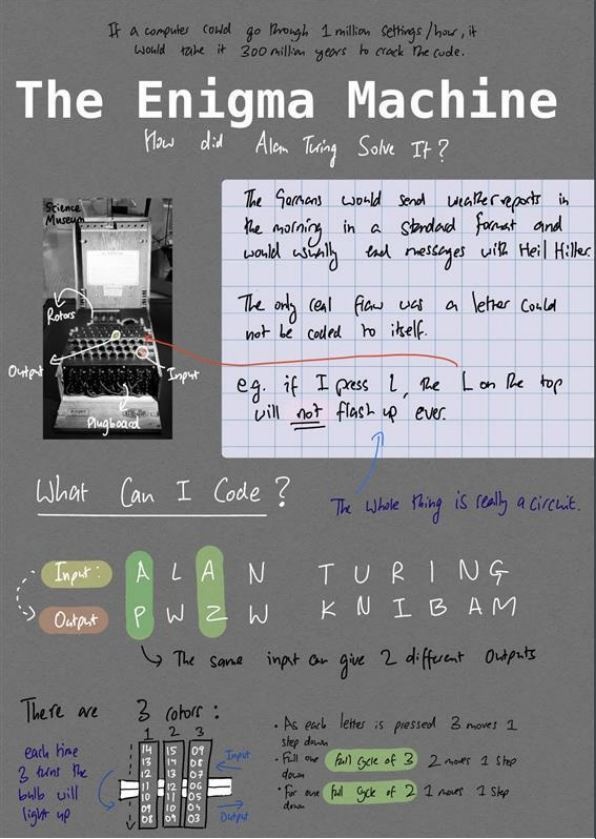 If a computer could go through 1 million settings/hour, it
would take it 300 million years to crack the code.
The Enigma Machine
How did Alan Turing Solve It?
Science
Museum
Rotors
Output
Input
Plugboard
The Germans would send weather reports in
the morning in a standard format and
would usually end messages with Heil Hitler.
The only real flaw was a letter could
not be coded to itself.
e.g. if I press L, the L on the top
will not flash up ever.
The whole thing is really a circuit.
What Can I Code?
Input: A L A N T U R I N G
Output P W Z W K N I B A M
The same input can give 2 different outputs
There are 3 rotors:
each time
3 turns the
bulb will
light up
1 2 3
14 15 09
13 14 08
12 13 07
11 12 06
10 11 05
09 10 04
08 09 03
Input
Output
• As each letter is pressed 3 moves 1
step down
• Full one full cycle of 3 2 moves 1 step
down
• For one full cycle of 2 1 moves 1 step
down